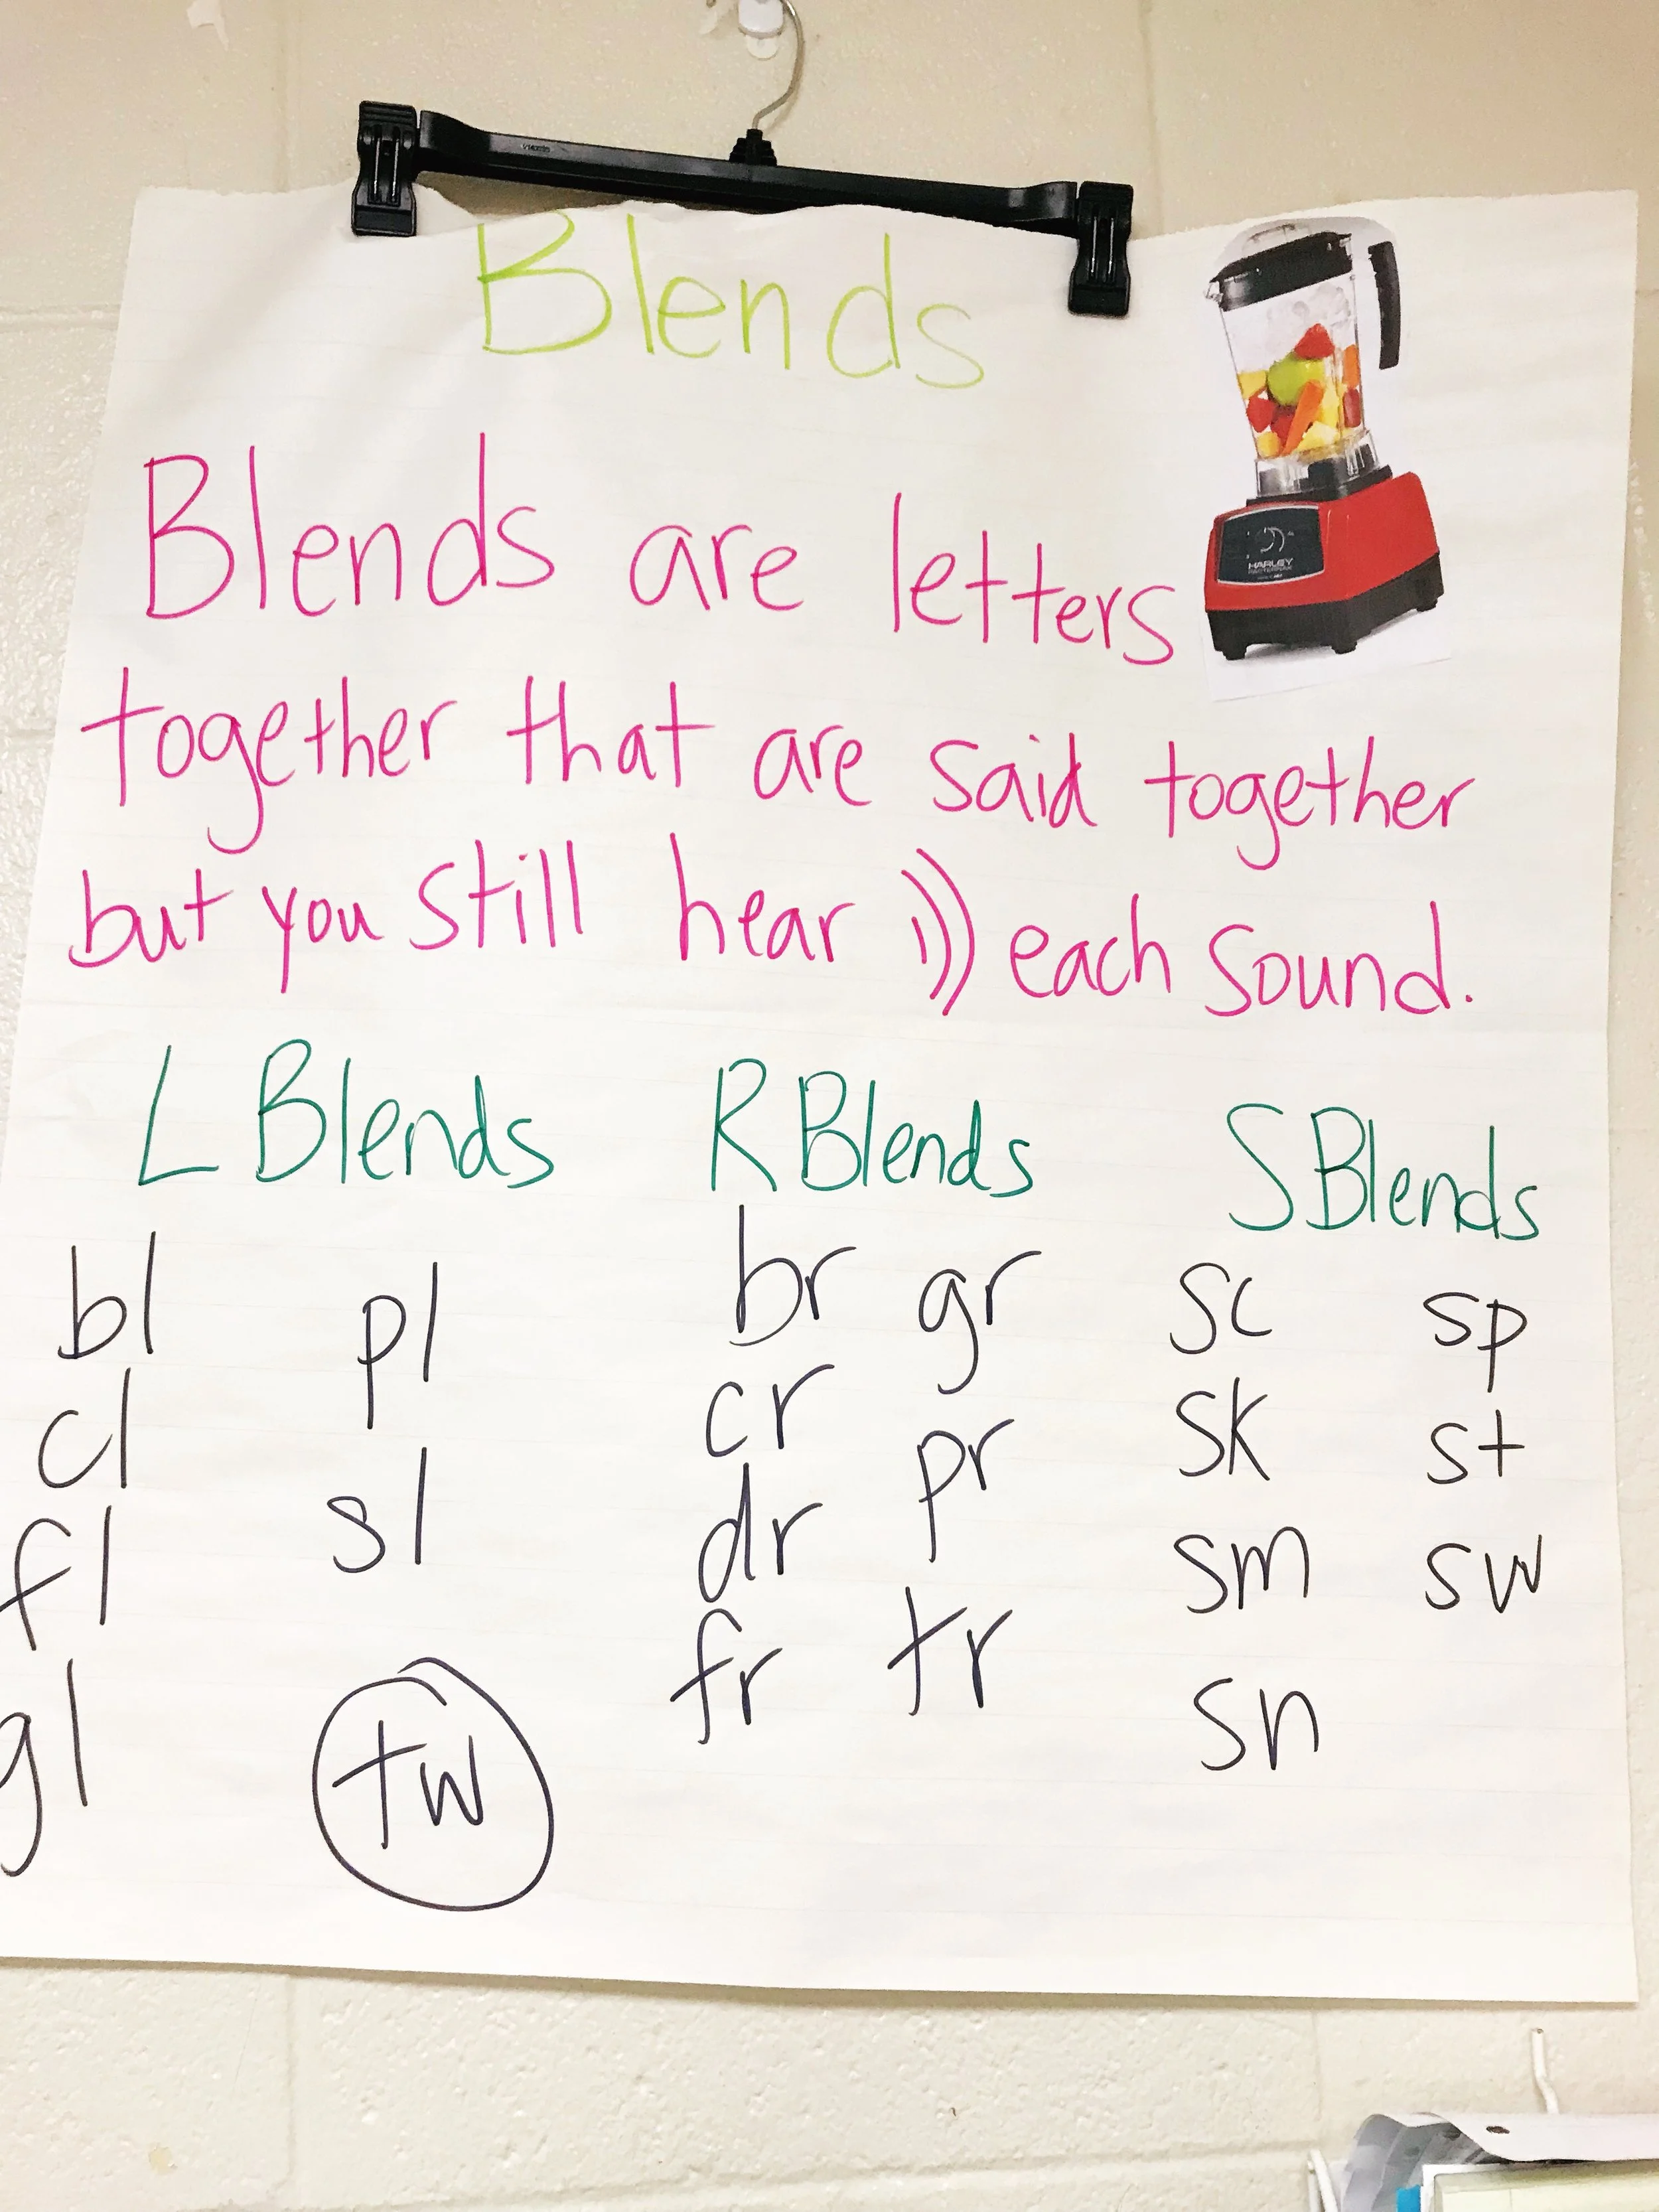 Blends
Blends are letters
together that are said together
but you still hear each sound.
L Blends R Blends S Blends
bl pl br gr sc sp
cl sl cr pr sk st
fl dr tr sm sw
gl tw fr sn
HARLEY